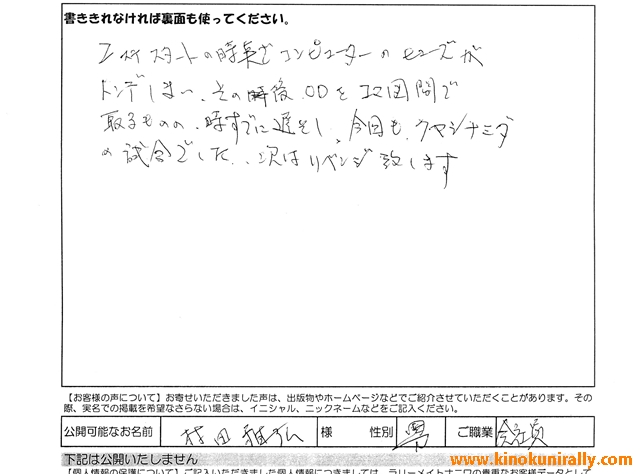 書ききれなければ裏面も使ってください。
スタートの時点でコンピューターのヒューズが
トンデしまい、その後、ODを 区間で
取るものの、時すでに遅そし、今回も、クヤシナミダ
の試合でした、、次はリベンジ致します
【お客様の声について】お寄せいただきました声は、出版物やホームページなどでご紹介させていただくことがあります。その
際、実名での掲載を希望なさらない場合は、イニシャル、ニックネームなどをご記入ください。
公開可能なお名前 村田 様 性別 男 ご職業 会社員
下記は公開いたしません
【個人情報の保護について】ご記入いただきました個人情報につきましては、ラリーメイトナニワの貴重なお客様データとして
www.kinokunirally.com